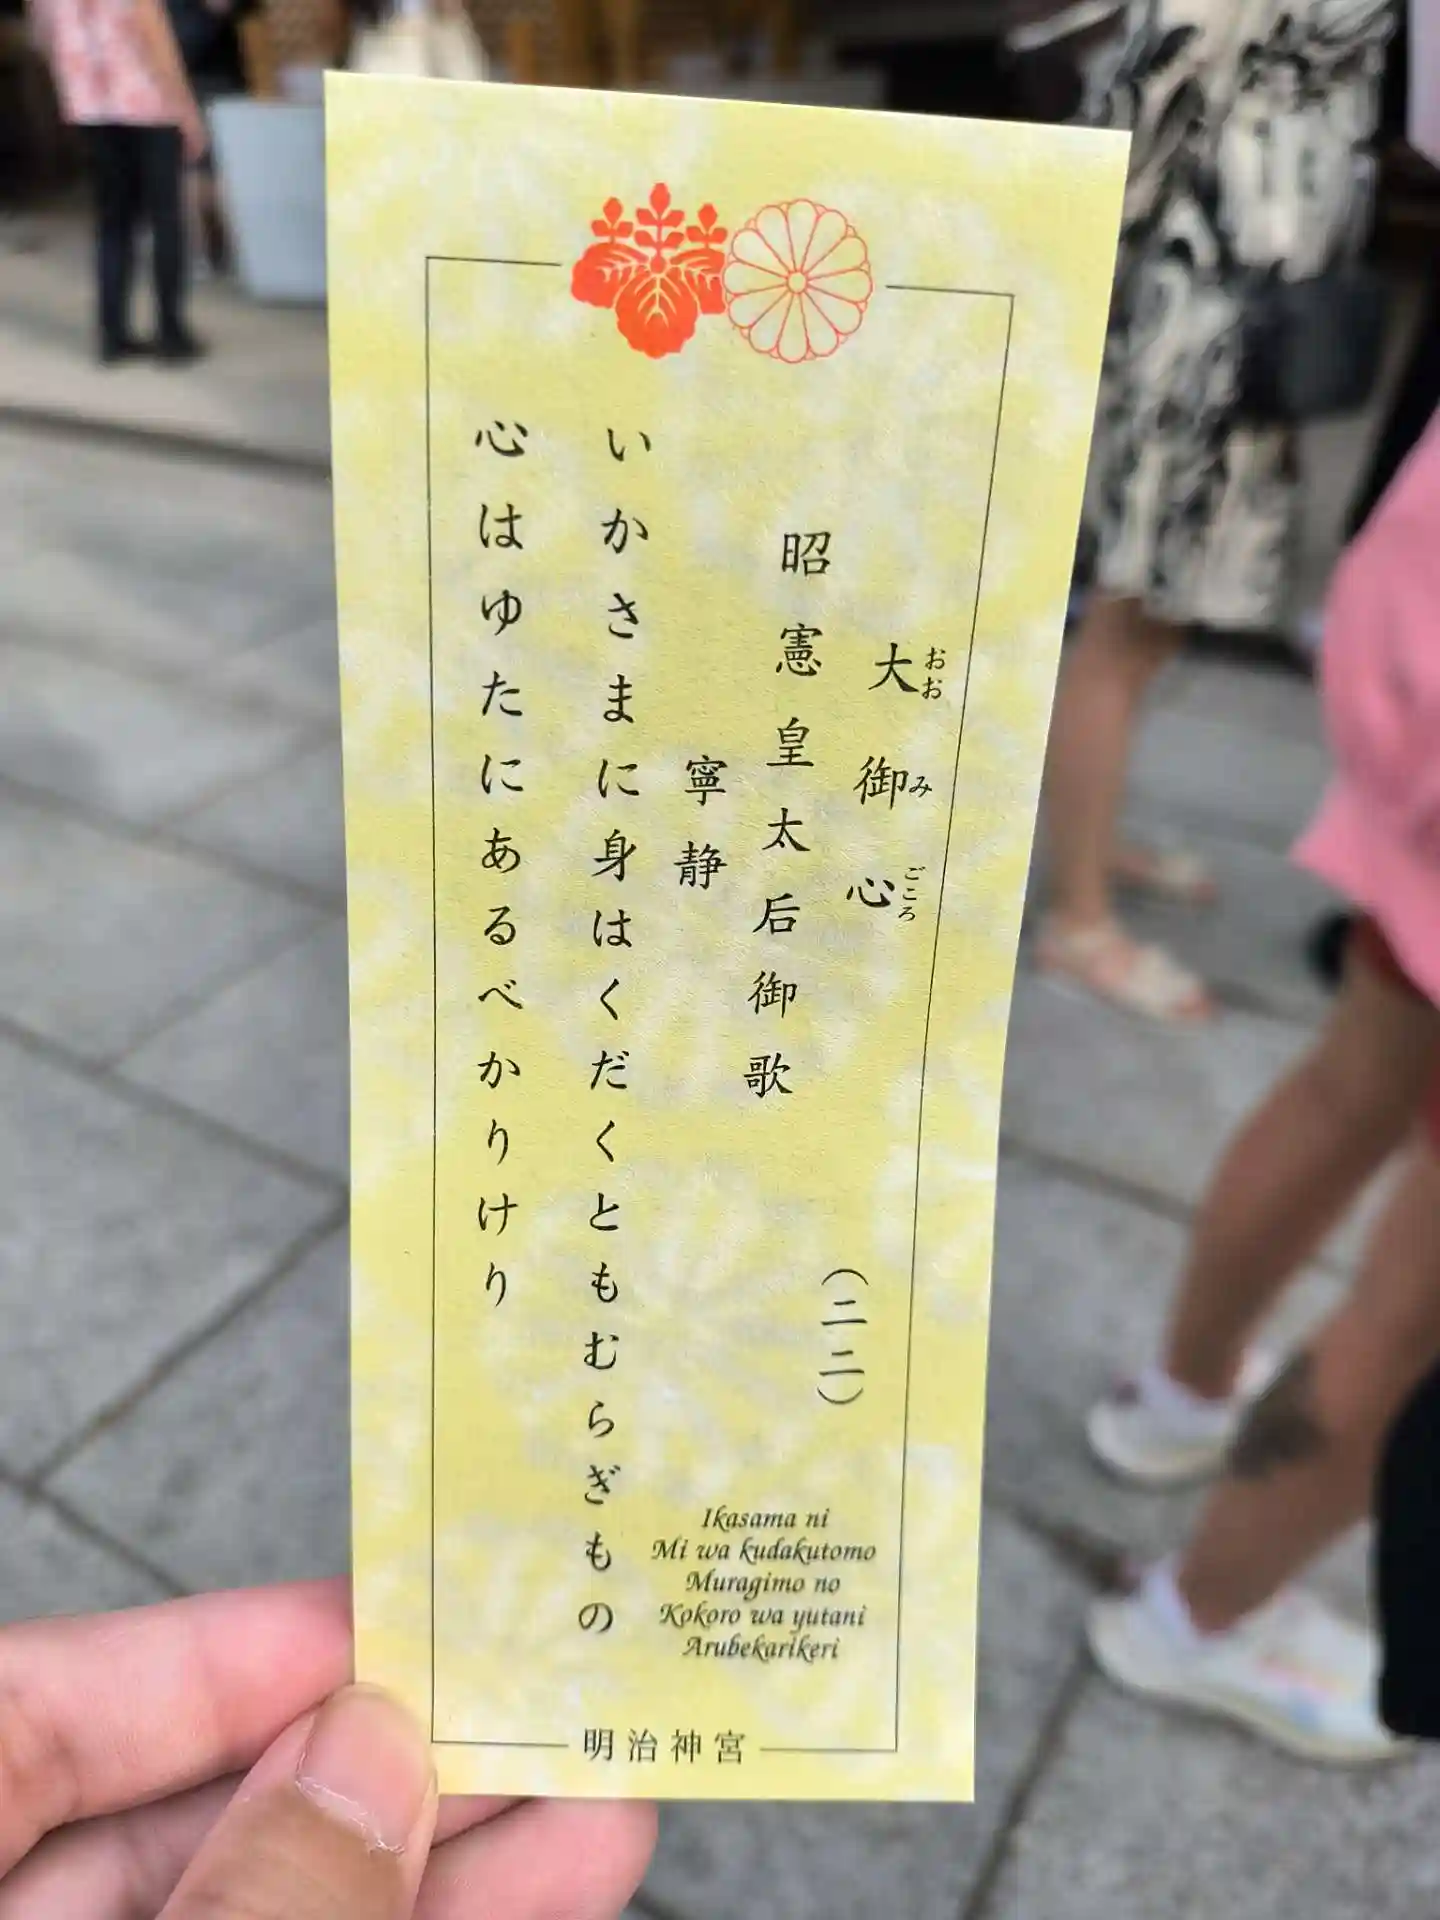 大御心
おお み ごころ
昭憲皇太后御歌
(二二)
寧静
いかさまに身はくだくともむらぎもの
心はゆたにあるべかりけり
Ikasama ni
Mi wa kudakutomo
Muragimo no
Kokoro wa yutani
Arubekarikeri
明治神宮